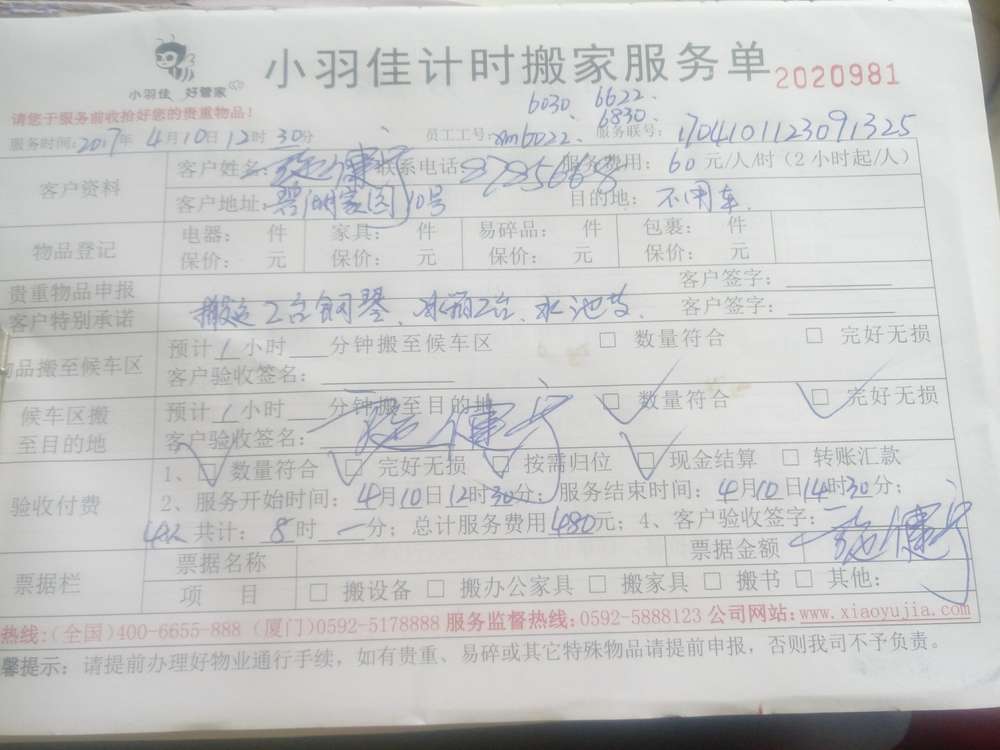 小羽佳 好管家
小羽佳计时搬家服务单 2020981
请您于服务前收拾好您的贵重物品!
6030. 6622.
6830.
服务时间:2017年4月10日12时30分 员工工号:xm6022. 服务联号:1704101123091325
客户资料
客户姓名: 联系电话 服务费用: 60元/人/时(2小时起/人)
客户地址: 家园10号 目的地: 不用车.
物品登记
电器: 件 家具: 件 易碎品: 件 包裹: 件
保价: 元 保价: 元 保价: 元 保价: 元
贵重物品申报 客户签字:
客户特别承诺 搬运2台钢琴、冰箱2台、水池 客户签字:
品搬至候车区
预计1小时 分钟搬至候车区 □ 数量符合 □ 完好无损
客户验收签名:
候车区搬至目的地
预计1小时 分钟搬至目的地 ☑ 数量符合 ☑ 完好无损
客户验收签名:
验收付费
1、☑ 数量符合 ☑ 完好无损 ☑ 按需归位 ☑ 现金结算 □ 转账汇款
2、服务开始时间: 4月10日12时30分; 服务结束时间: 4月10日14时30分;
4人 共计: 8时一分; 总计服务费用480元; 4、客户验收签字:
票据栏
票据名称 票据金额
项 目 □ 搬设备 □ 搬办公家具 □ 搬家具 □ 搬书 □ 其他:
热线:(全国)400-6655-888 (厦门)0592-5178888 服务监督热线:0592-5888123 公司网站:www.xiaoyujia.com
馨提示: 请提前办理好物业通行手续, 如有贵重、易碎或其它特殊物品请提前申报, 否则我司不予负责。